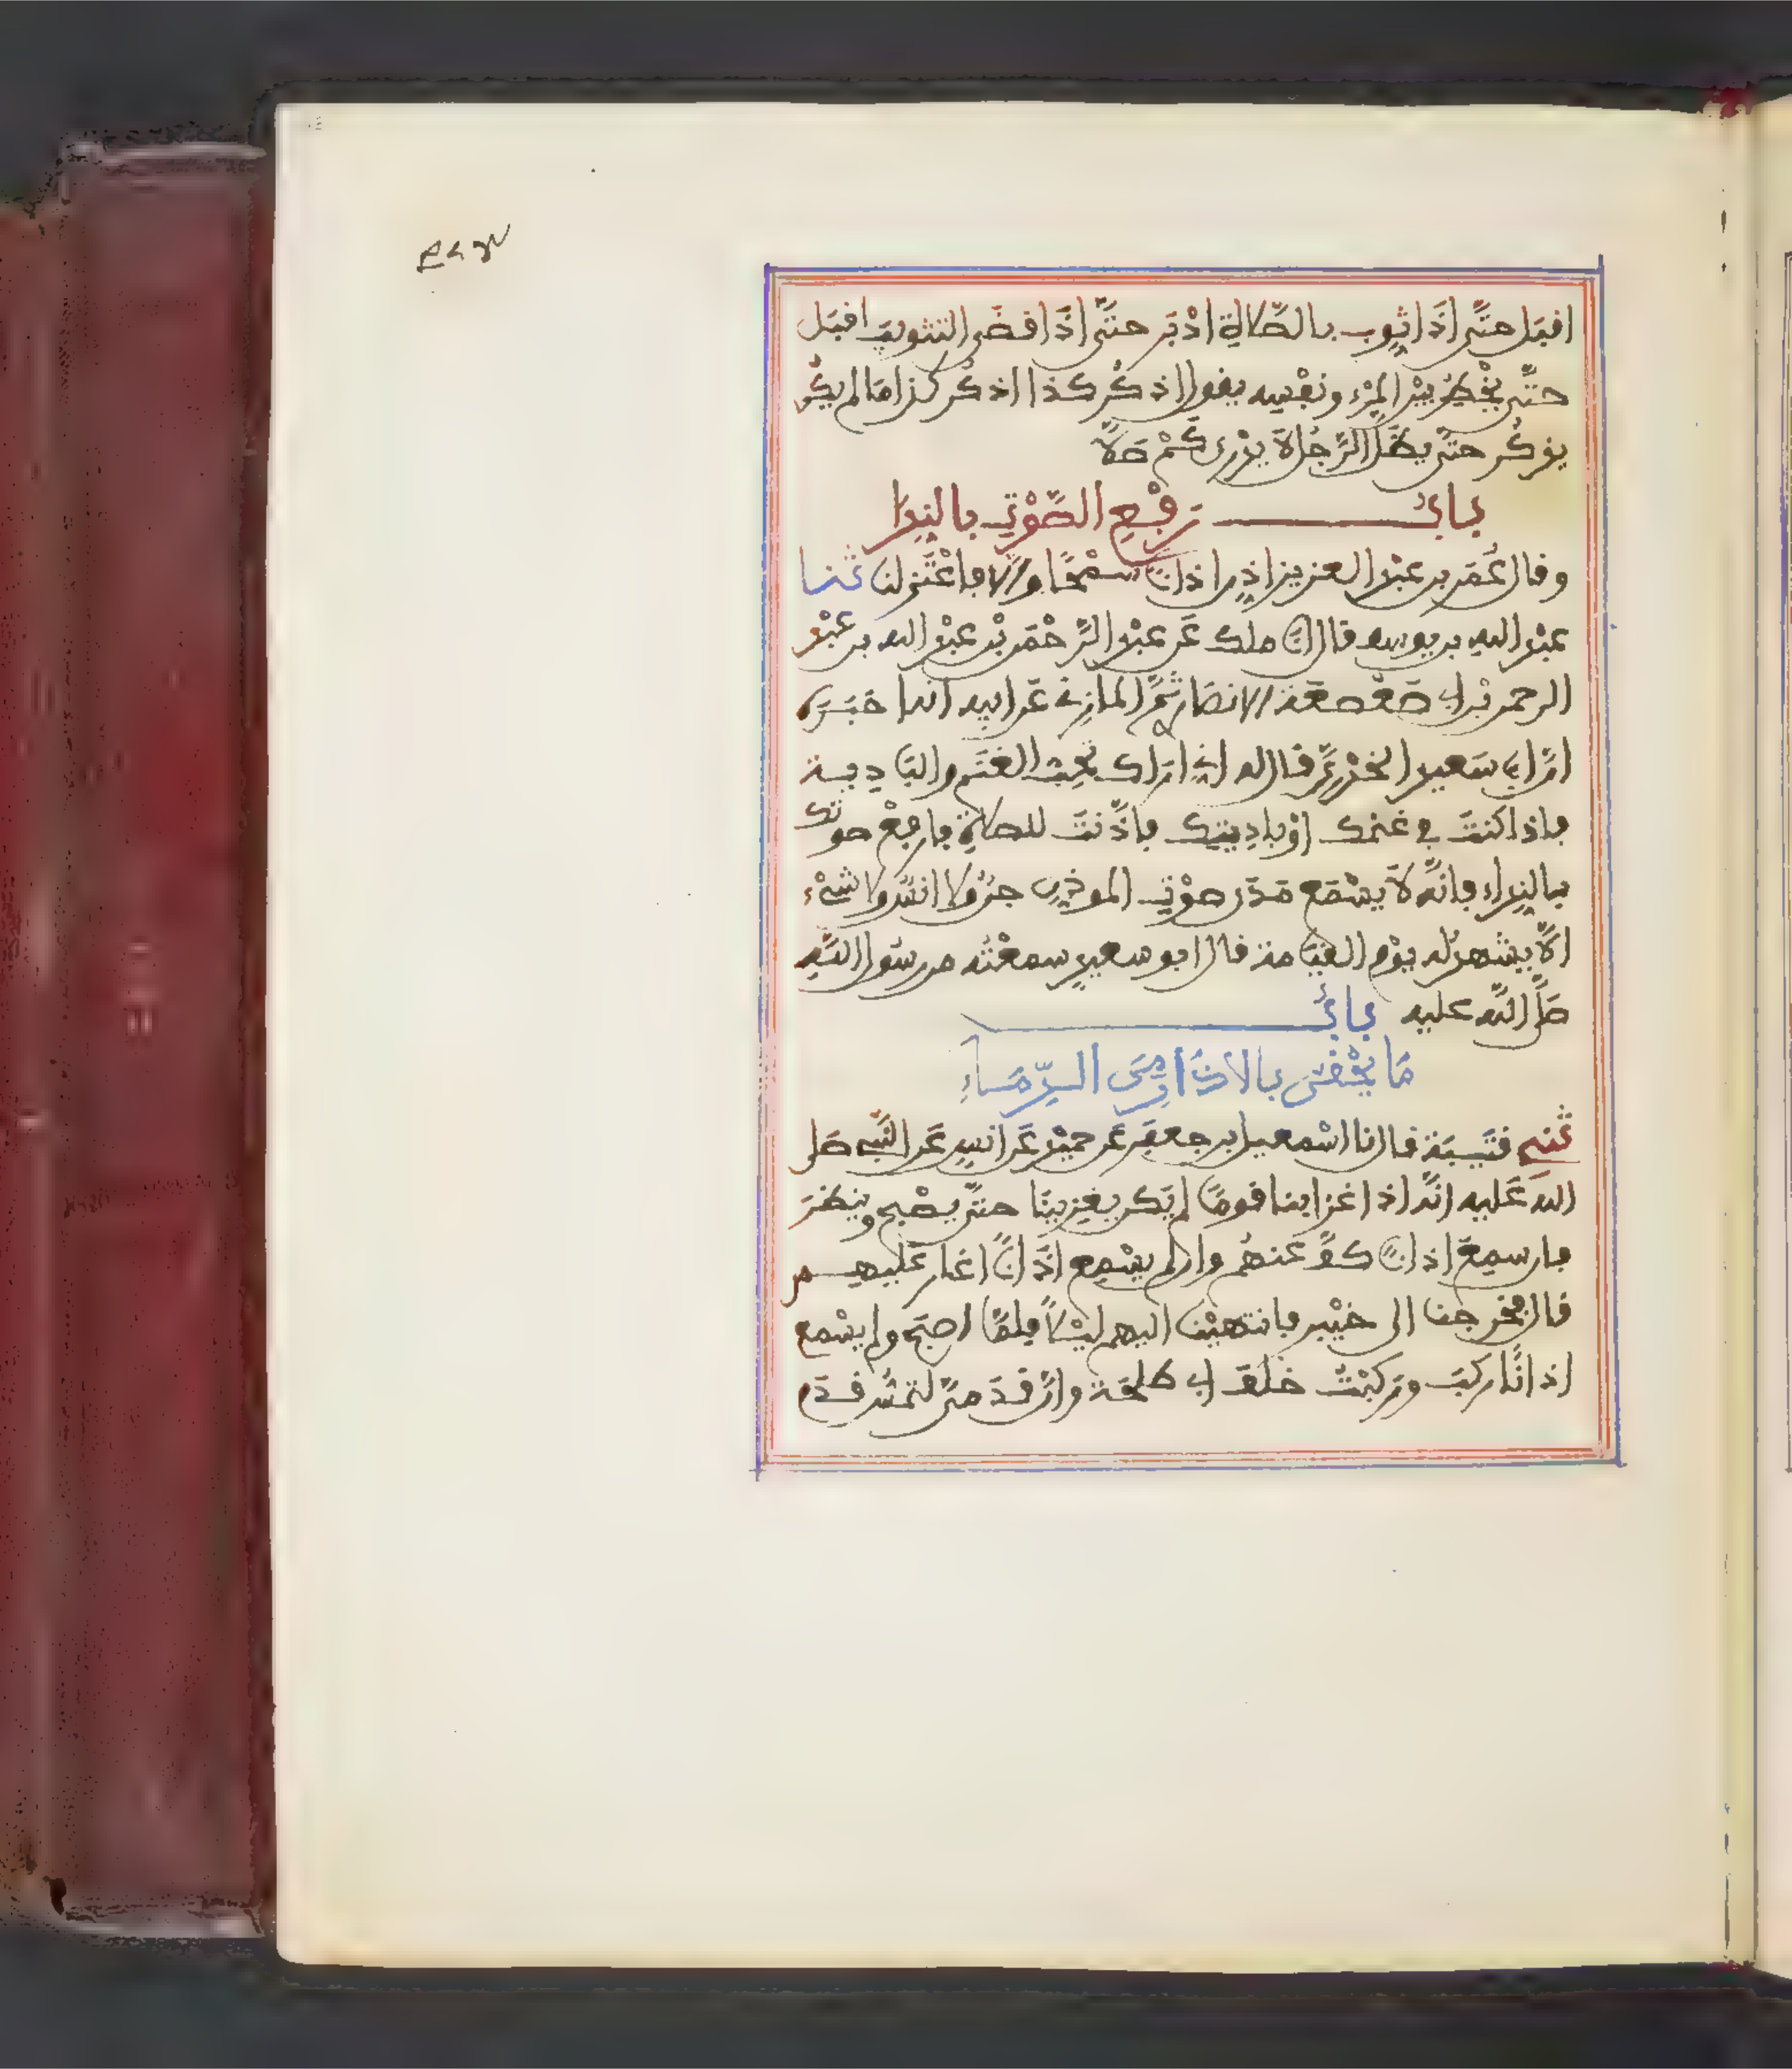 اقبل حتّى اذا ثوب بالصّلاة ادْبر حتّى اذا قضى التثويب اقبل
حتّى يخْطر بيْن المرْء ونفْسه يقول اذكر كذا اذكر كذا لما لم يكن
يذكر حتّى يظلّ الرّجل لا يدْرى كمْ صلّى
باب رفْع الصّوْت بالندا
وقال عُمَر بن عبْد العزيز اذّن اذانا سمْحًا والّا فاعْتزلنا ثنا
عبْد الله بن يوسف قال انا ملك عن عبْد الرّحْمن بْن عبْد الله بن عبْد
الرحمن بْن ابى صعْصعة الانصارىّ ثمّ المازنى عن ابيه انه اخبره
انّ ابا سعيد الخدْرىّ قال له انى اراك تحبّ الغنم والبادية
فاذا كنت فى غنمك اوْ باديتك فاذّنت للصلاة فارفعْ صوتك
بالنداء فانّه لا يسْمع مدى صوْت الموذن جنّ ولا انس ولا شىْء
الّا يشهد له يوْم القيامة قال ابو سعيد سمعْته من رسول الله
صلّى الله عليه باب
ما يحْقن بالاذان من الدّماء
ثنى قتيبة قال نا اسْمعيل بن جعفر عن حميْد عن انس عن النّبى صلى
الله عليه انّه اذا غزا بنا قومًا لم يكن يغز بنا حتّى يصْبح وينظر
فان سمع اذانًا كفّ عنهم وان لم يسْمع اذانًا اغار عليهم
قال فخرجنا الى خيْبر فانتهيْنا اليهم ليْلاً فلمّا اصبح ولم يسْمع
اذانًا ركب وركبْت خلف ابى طلحة وانّ قدمىّ لتمسّ قدم